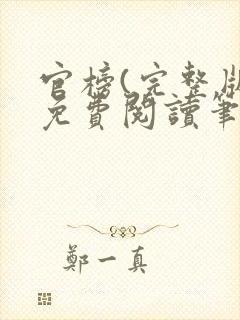 官榜(完整版
免費閱讀筆
鄭一真